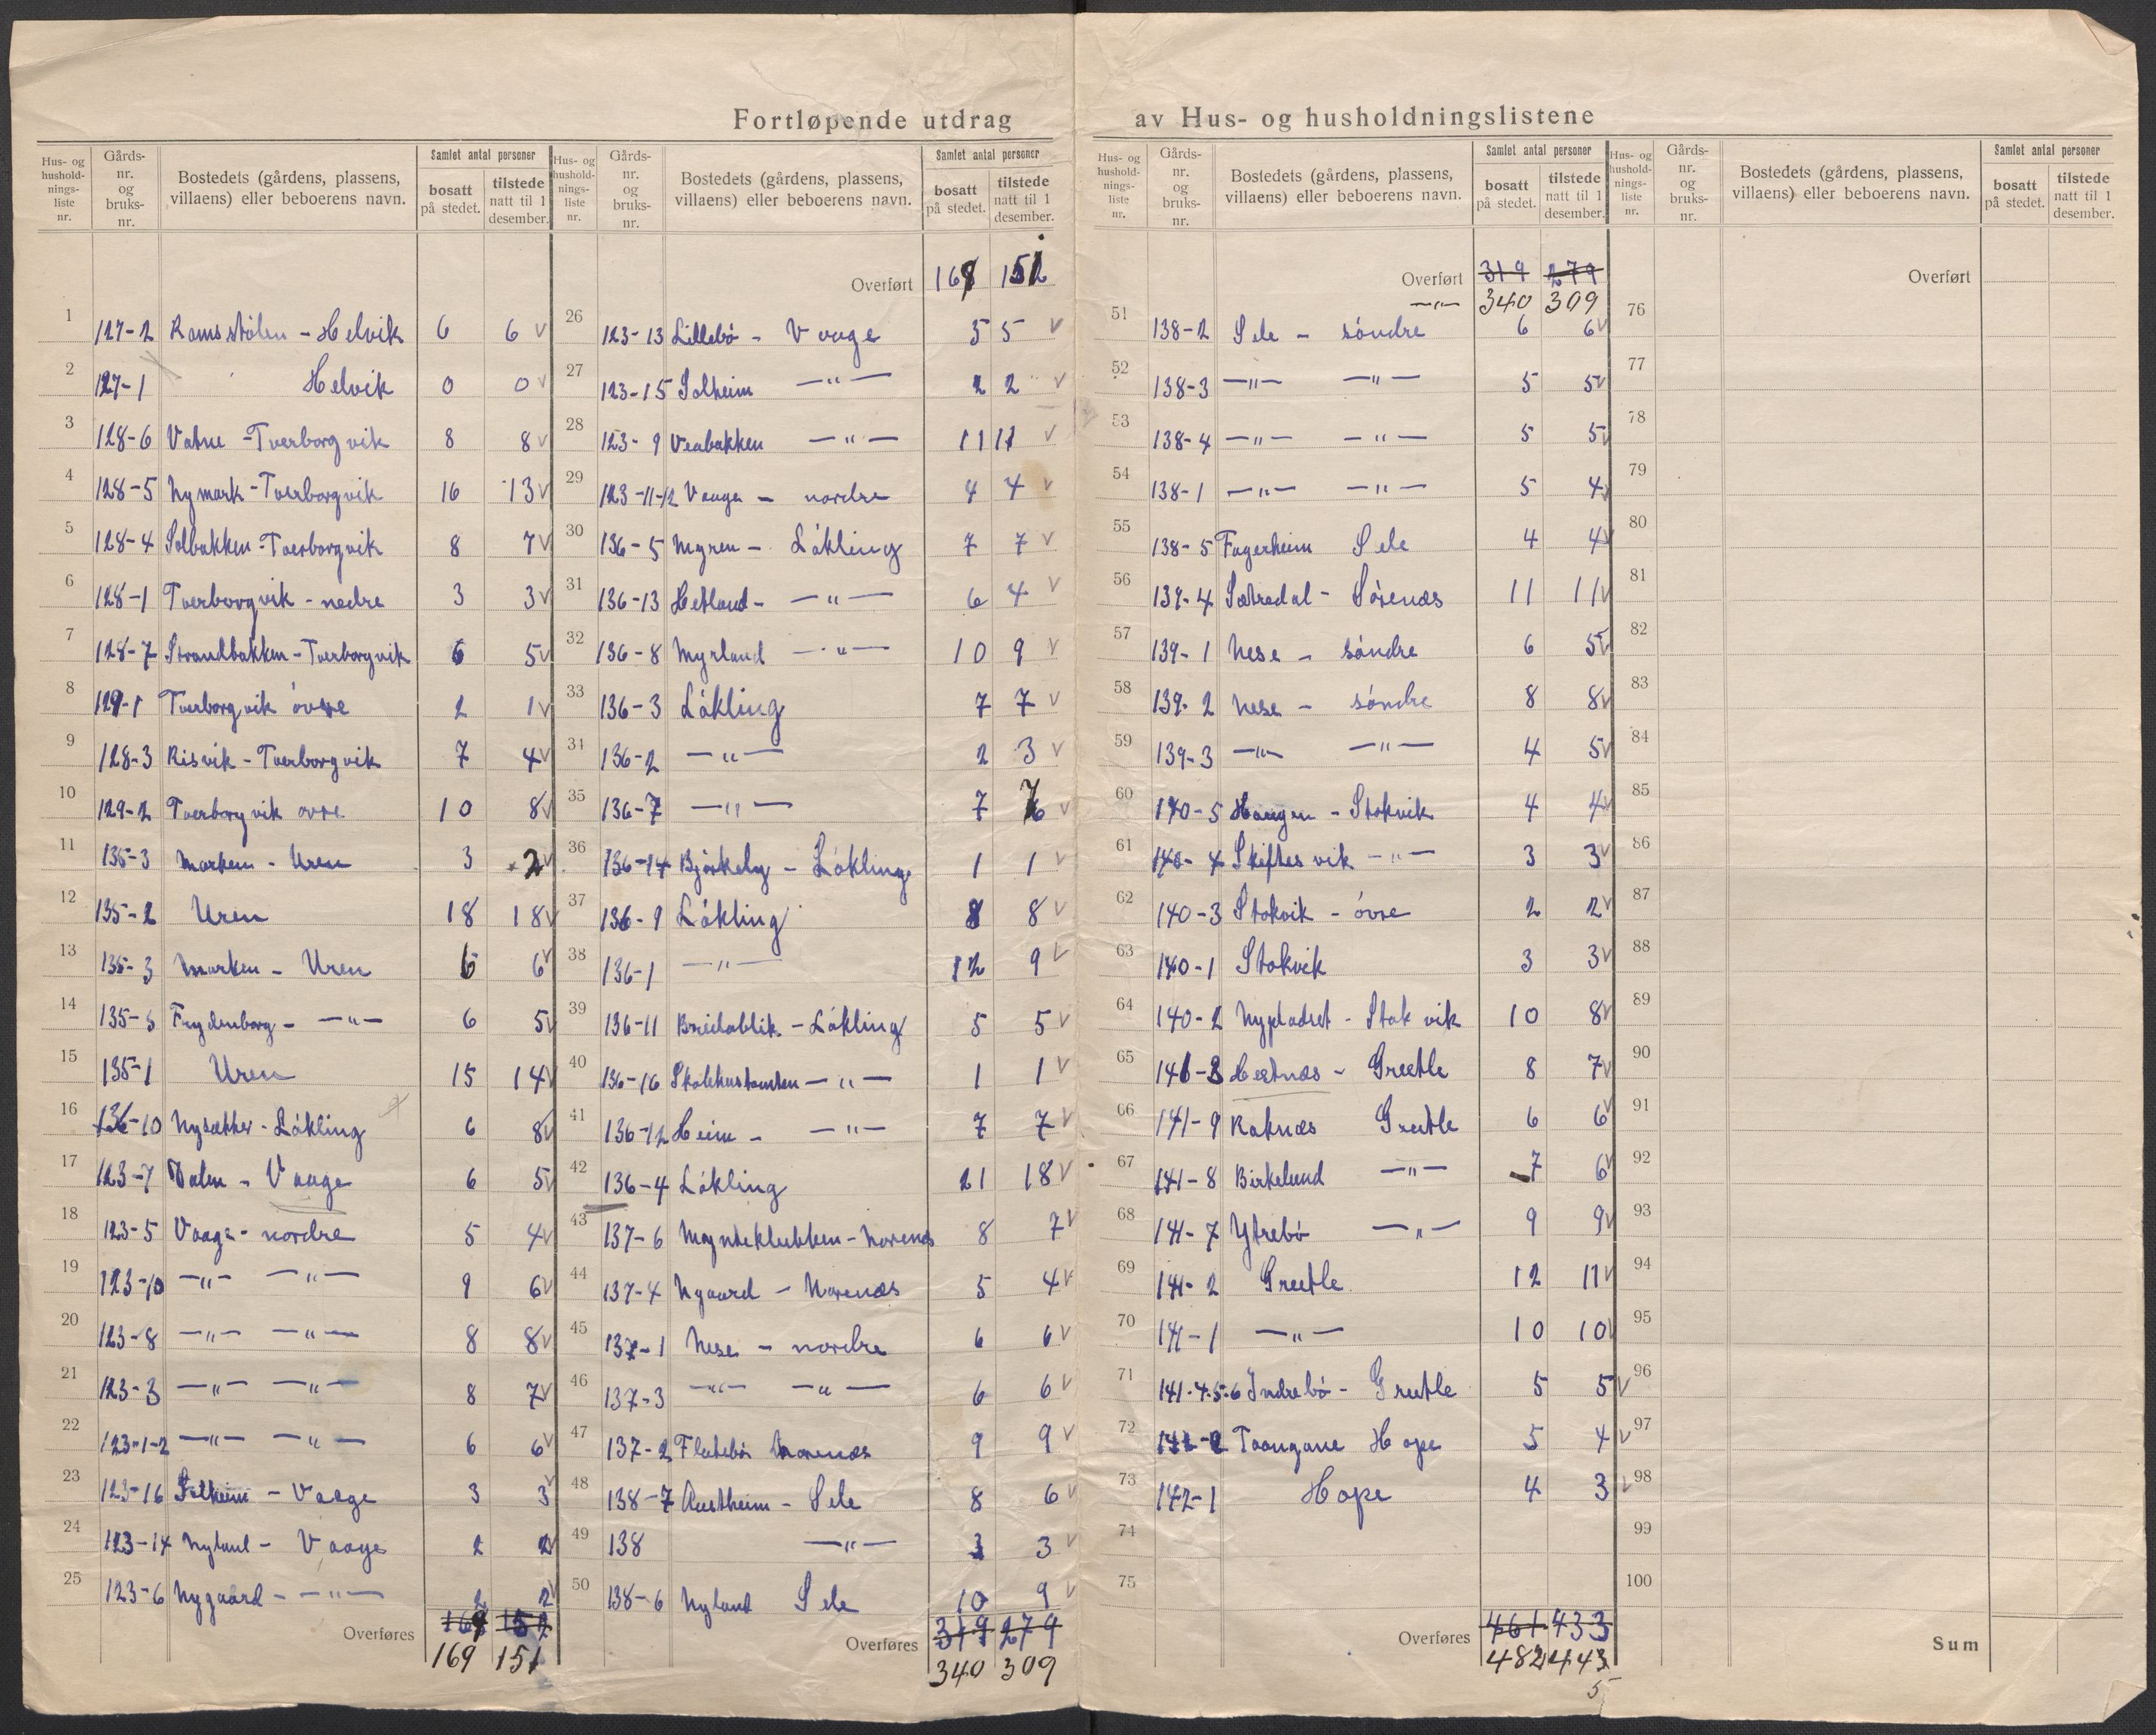 Fortløpende utdrag av Hus- og husholdningslistene
Hus- og hushold-nings-liste nr. Gårds-nr. og bruks-nr. Bostedets (gårdens, plassens, villaens) eller beboerens navn. Samlet antal personer bosatt på stedet. tilstede natt til 1 desember.
1 127-2 Ramsstølen - Helvik 6 6 v
2 127-1 Helvik 0 0 v
3 128-6 Vatne - Tverborgvik 8 8 v
4 128-5 Nymark - Tverborgvik 16 13 v
5 128-4 Solbakken - Tverborgvik 8 7 v
6 128-1 Tverborgvik - nedre 3 3 v
7 128-7 Strandbakken - Tverborgvik 6 5 v
8 129-1 Tverborgvik óvre 2 1 v
9 128-3 Risvik - Tverborgvik 7 4 v
10 129-2 Tverborgvik ovre 10 8 v
11 135-3 Marken - Uren 3 2 v
12 135-2 Uren 18 18 v
13 135-3 Marken - Uren 6 6 v
14 135-5 Frydenborg - —"— 6 5 v
15 135-1 Uren 15 14 v
16 136-10 Nysæther - Lókling 6 8 v
17 123-7 Dalen - Vaage 6 5 v
18 123-5 Vaage - nordre 5 4 v
19 123-10 —"— —"— 9 6 v
20 123-8 —"— —"— 8 8 v
21 123-3 —"— —"— 8 7 v
22 123-1-2 —"— —"— 6 6 v
23 123-16 Solheim - Vaage 3 3 v
24 123-14 Nylund - Vaage 2 2 v
25 123-6 Nygaard - —"— 2 2 v
Overføres 169 152
169 151
Hus- og hushold-nings-liste nr. Gårds-nr. og bruks-nr. Bostedets (gårdens, plassens, villaens) eller beboerens navn. Samlet antal personer bosatt på stedet. tilstede natt til 1 desember.
Overført 169 151
26 123-13 Lillebó - Vaage 5 5 v
27 123-15 Solheim —"— 2 2 v
28 123-9 Veabakken —"— 11 11 v
29 123-11-12 Vaage - nordre 4 4 v
30 136-5 Myren - Lókling 7 7 v
31 136-13 Hetland - —"— 6 4 v
32 136-8 Myrland —"— 10 9 v
33 136-3 Lókling 7 7 v
34 136-2 —"— 2 3 v
35 136-7 —"— 7 7 v
36 136-14 Bjórkely - Lókling 1 1 v
37 136-9 Lókling 8 8 v
38 136-1 —"— 12 9 v
39 136-11 Breidablik - Lókling 5 5 v
40 136-16 Skolehustomten —"— 1 1 v
41 136-12 Heim - —"— 7 7 v
42 136-4 Lókling 21 18 v
43 137-6 Mynteklubben - Norenæs 8 7 v
44 137-4 Nygaard - Norenæs 5 4 v
45 137-1 Nese - nordre 6 6 v
46 137-3 —"— —"— 6 6 v
47 137-2 Fletebó Norenæs 9 9 v
48 138-7 Austheim - Sele 8 6 v
49 138 —"— 3 3 v
50 138-6 Nylund Sele 10 9 v
Overføres 319 279
340 309
Hus- og hushold-nings-liste nr. Gårds-nr. og bruks-nr. Bostedets (gårdens, plassens, villaens) eller beboerens navn. Samlet antal personer bosatt på stedet. tilstede natt til 1 desember.
Overført 319 279
—"— 340 309
51 138-2 Sele - sóndre 6 6 v
52 138-3 —"— —"— 5 5 v
53 138-4 —"— —"— 5 5 v
54 138-1 —"— —"— 5 4 v
55 138-5 Fagerheim Sele 4 4 v
56 139-4 Sætredal - Sórenæs 11 11 v
57 139-1 Nese - sóndre 6 5 v
58 139-2 Nese - sóndre 8 8 v
59 139-3 —"— —"— 4 5 v
60 140-5 Haugen - Stokvik 4 4 v
61 140-4 Skiftesvik —"— 3 3 v
62 140-3 Stokvik - óvre 2 2 v
63 140-1 Stokvik 3 3 v
64 140-2 Nypladset - Stokvik 10 8 v
65 141-3 Hestnæs - Greetle 8 7 v
66 141-9 Raknæs Greetle 6 6 v
67 141-8 Birkelund —"— 7 6 v
68 141-7 Ytrebó —"— 9 9 v
69 141-2 Greetle 12 11 v
70 141-1 —"— 10 10 v
71 141-4-5-6 Indrebó - Greetle 5 5 v
72 142-2 Taangane Hope 5 4 v
73 142-1 Hope 4 3 v
74
75
Overføres 461 433
482 443
5
Hus- og hushold-nings-liste nr. Gårds-nr. og bruks-nr. Bostedets (gårdens, plassens, villaens) eller beboerens navn. Samlet antal personer bosatt på stedet. tilstede natt til 1 desember.
Overført
76
77
78
79
80
81
82
83
84
85
86
87
88
89
90
91
92
93
94
95
96
97
98
99
100
Sum